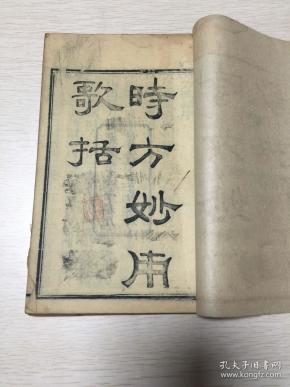 時方妙用
歌括
孔夫子旧书网
www.kongfz.com